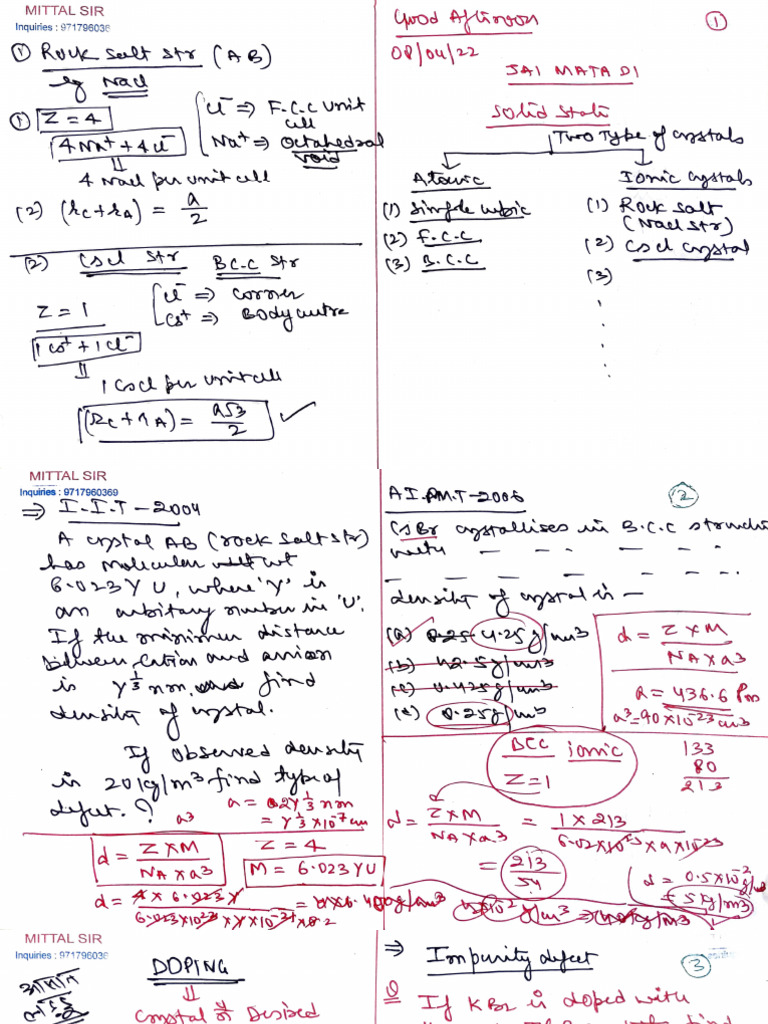 MITTAL SIR
Inquiries : 971796036
① Rock salt str (AB)
eg Nacl
① Z = 4
4 Na⁺ + 4 Cl⁻
Cl⁻ ⇒ F.C.C unit cell
Na⁺ ⇒ octahedral void
4 Nacl per unit cell
(2) (rc + rA) = a/2
(2) Cscl str B.C.C str
Z = 1
Cl⁻ ⇒ corner
Cs⁺ ⇒ Body centre
1 Cs⁺ + 1 Cl⁻
1 Cscl per unit cell
(rc + rA) = a√3/2
Good Afternoon
①
08/04/22
JAI MATA DI
Solid State
Two Type of crystals
Atomic
(1) simple cubic
(2) F.C.C
(3) B.C.C
Ionic crystals
(1) Rock salt
(Nacl str)
(2) Cscl crystal
(3)
MITTAL SIR
Inquiries : 9717960369
⇒ I.I.T - 2004
A crystal AB (rock salt str)
has molecular wt
6.023 Y U, where 'Y' is
an arbitary number in 'U'.
If the minimum distance
between cation and anion
is Y^1/3 nm, find
density of crystal.
If observed density
is 20 kg/m³ find type of
defect. ?
a³
a = 2Y^1/3 nm
= Y^1/3 × 10⁻⁷ cm
d = Z × M / NA × a³
Z = 4
M = 6.023 Y U
d = 4 × 6.023 Y
A I.P.M.T - 2006
②
CsBr crystallises in B.C.C structure
with — — — — —
— — — — — — —
density of crystal is —
(a) 4.25 g/cm³
(b) 42.5 g/cm³
(c) 0.425 g/cm³
(d) 0.25 g/cm³
d = Z × M / NA × a³
a = 436.6 Pm
a³ = 90 × 10⁻²³ cm³
BCC ionic
Z = 1
133
80
213
d = Z × M / NA × a³ = 1 × 213 / 6.02 × 10²³ × 9 × 10⁻²³
= 213 / 54
d = 0.5 × 10⁻² g/
= 5 g/m³
MITTAL SIR
Inquiries : 971796036
DOPING
Crystal Desired
⇒ Impurity defect
③
Q If KBr is doped with